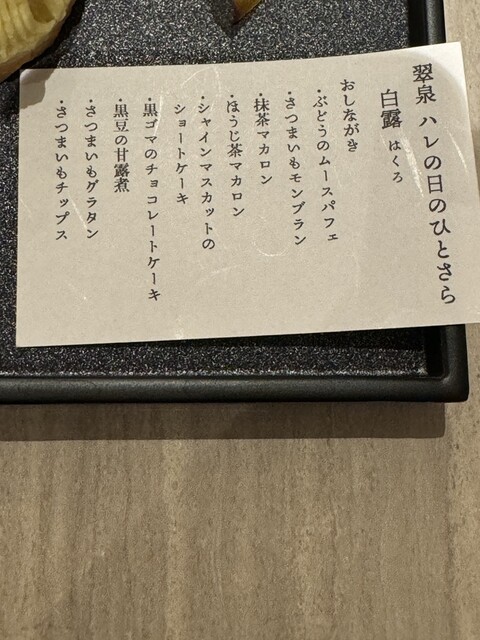 翠泉 ハレの日のひとさら
白露 はくろ
おしながき
・ぶどうのムースパフェ
・さつまいもモンブラン
・抹茶マカロン
・ほうじ茶マカロン
・シャインマスカットの
ショートケーキ
・黒ゴマのチョコレートケーキ
・黒豆の甘露煮
・さつまいもグラタン
・さつまいもチップス